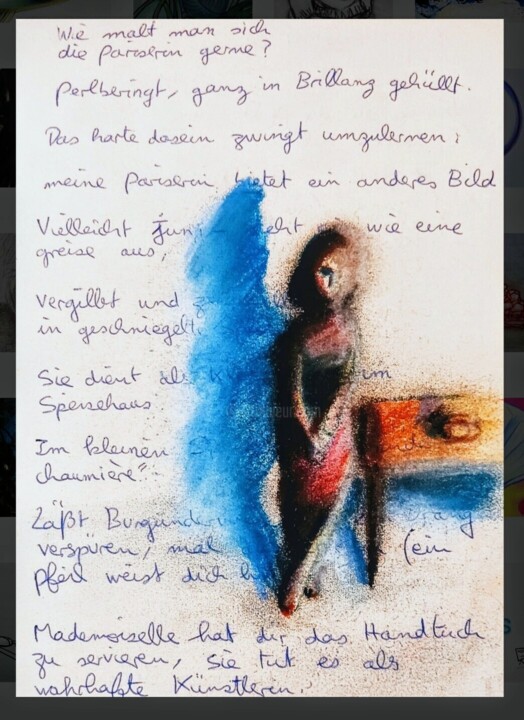 Wie malt man sich
die Pariserin gerne?
Perlberingt, ganz in Brillanz gehüllt.
Das harte dasein zwingt umzulernen;
meine Pariserin bietet ein anderes Bild
Vielleicht wie eine
greise aus,
Vergilbt und
in geschniegelt
Sie dient als
Speisehaus
Im kleinen
chaumière":
Läßt Burgunder
verspüren, mal (ein
Pfeil weist dich
Mademoiselle hat dir das Handtuch
zu servieren, sie tut es als
wahrhafte Künstlerin.